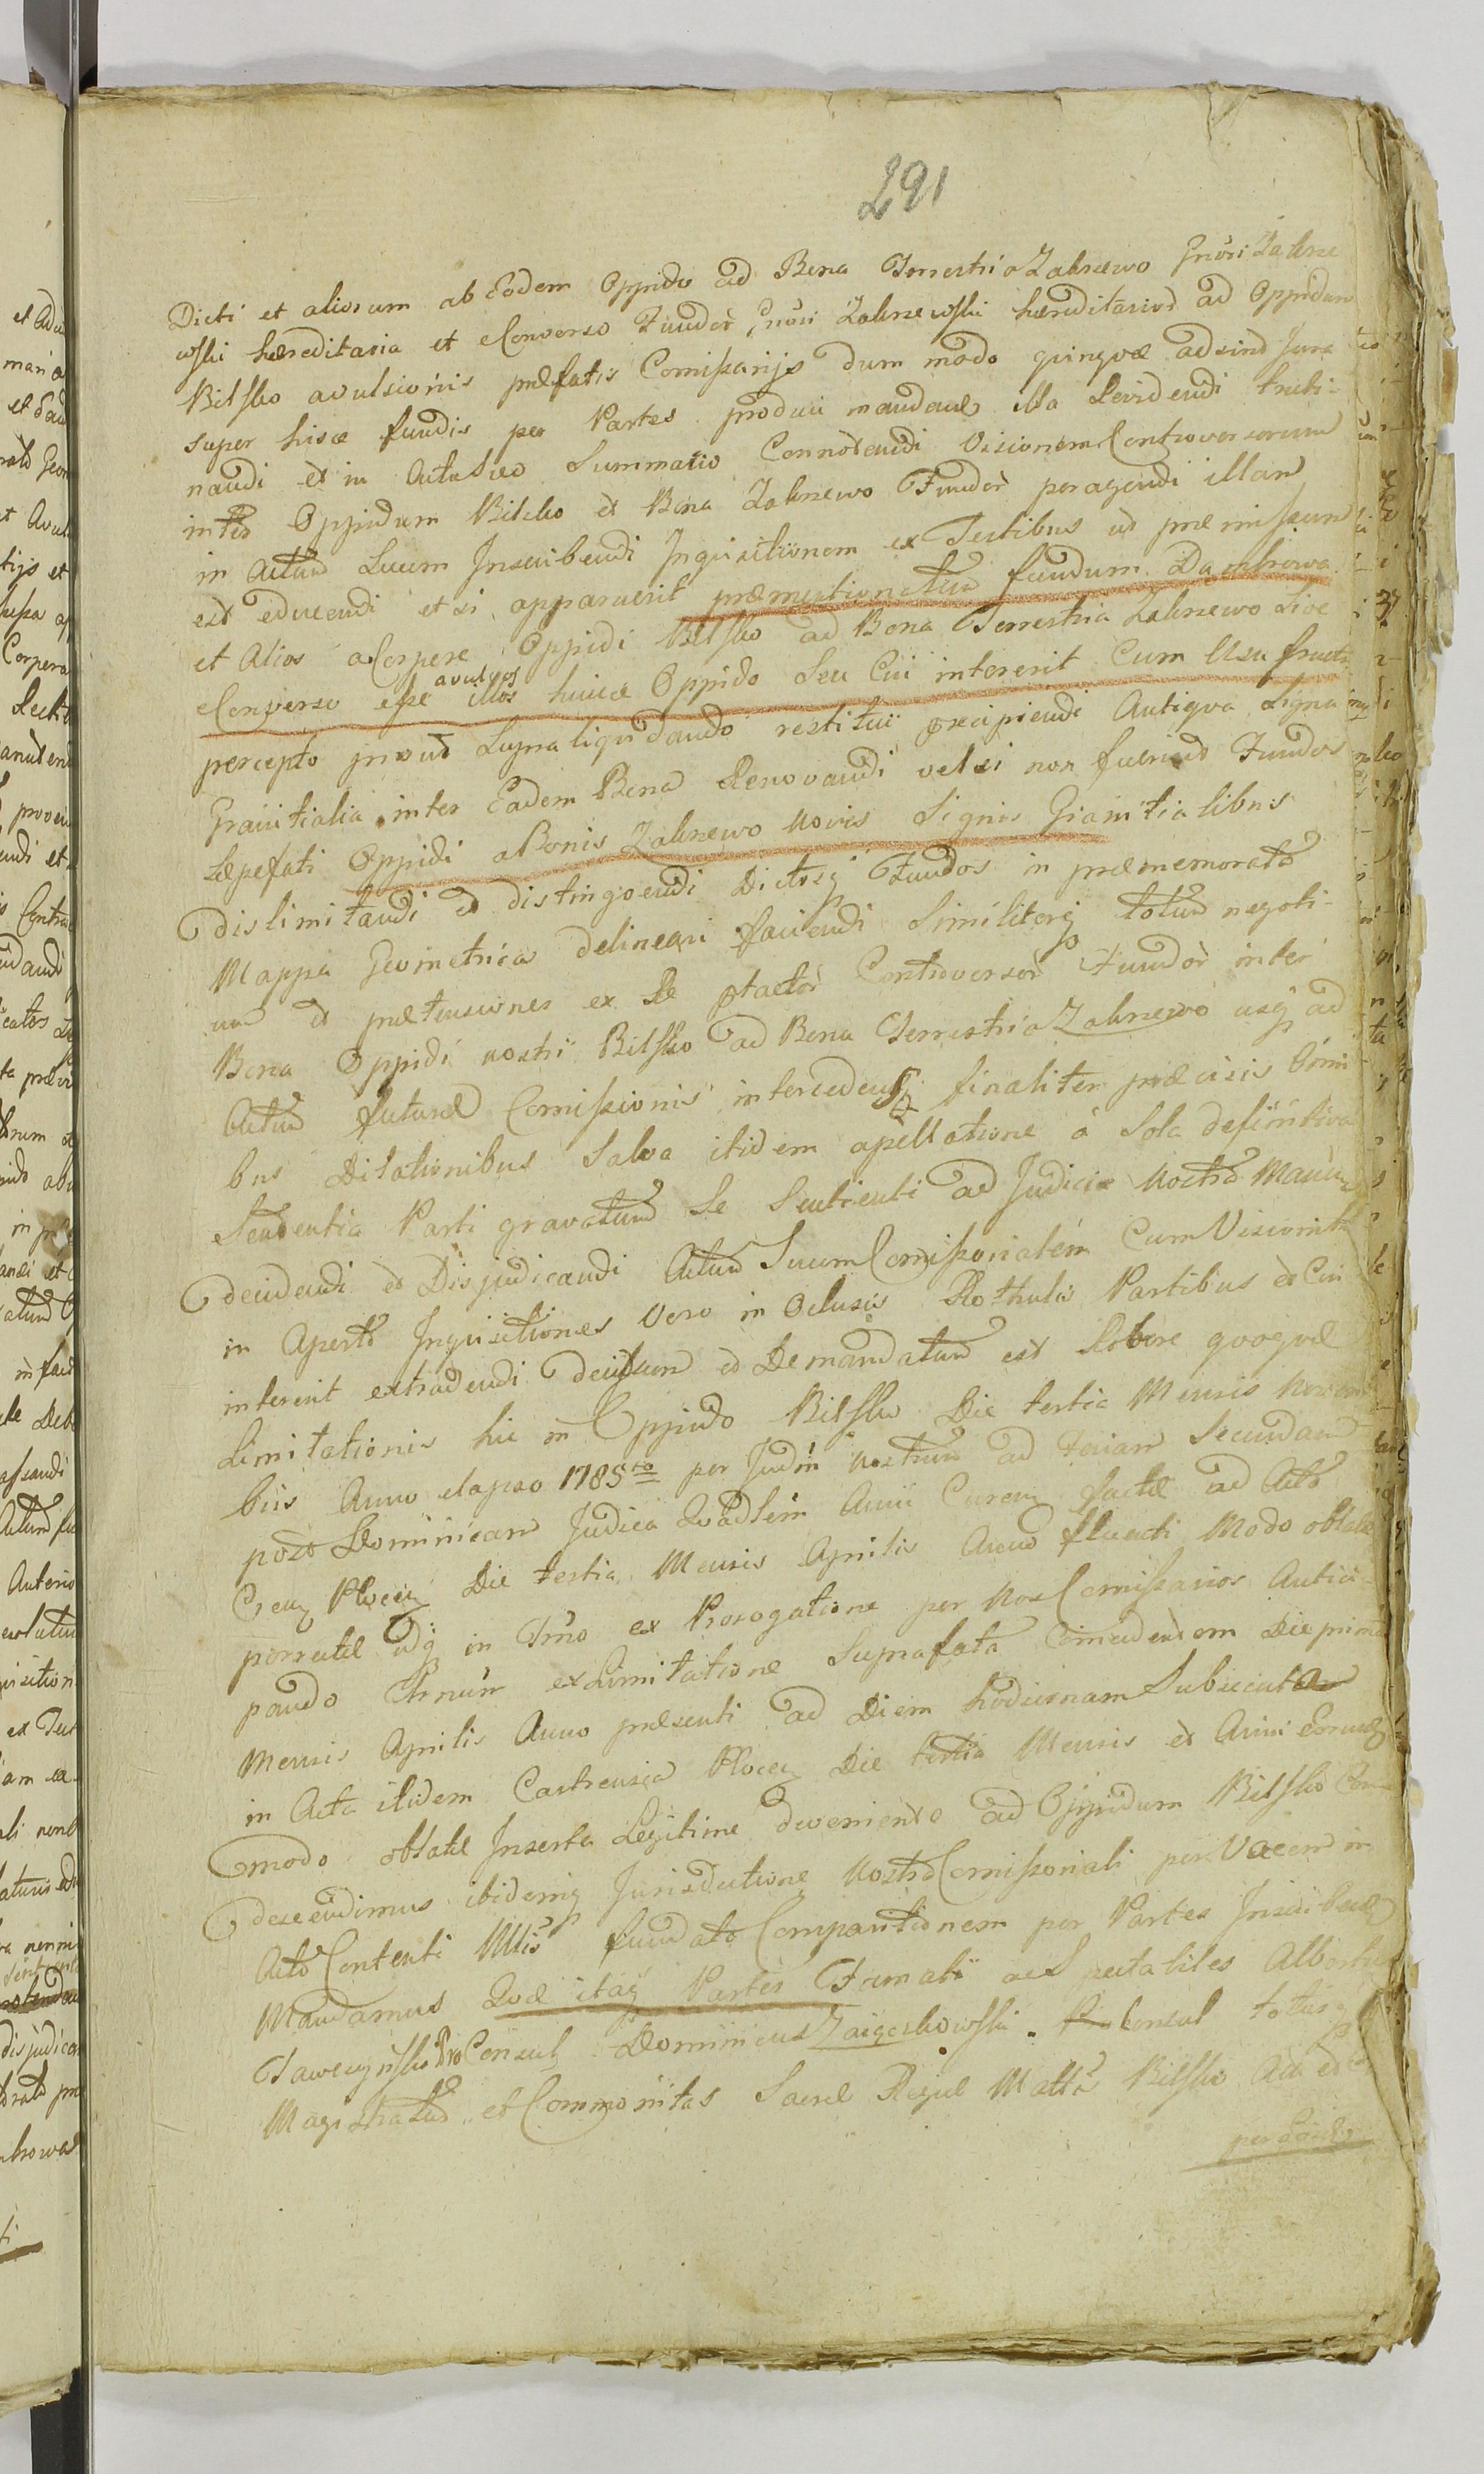 291
Dicti et aliorum ab Eodem Oppido ad Bona Terrestria Zakrzewo Gnosi Zakrze
wski hæreditaria et e Converso Fundor Gnosi Zakrzewski hæreditarior ad Oppidum
Bilsko avulsionis præfatis Comissarijs dum modo quinque adsind Jura
super hisce fundis per Partes produci mandand illa Revidendi truti-
nandi et in Actu suo Summario Connotandi Visionem Controversorum
inter Oppidum Bilsko et Bona Zakrzewo Fundor peragendi illam
in Actum Suum Inscribendi Inquisitionem ex Testibus ut præmissum
est educendi et si apparuerit præmentionatum fundum Dambrowa
et Alios a Corpore Oppidi Bilsko ad Bona Terrestria Zakrzewo sive
e Converso esse avulsos illos huicce Oppido Seu Cui intererit Cum Usu fructu
percepto prout Supra liquidando restitui præcipiendi Antiqua Signa
Granitialia inter Eadem Bona Renovandi vel si non fuerint Fundos
Sæpefati Oppidi a Bonis Zakrzewo Novis Signis Granitialibus
dislimitandi et distingvendi Dictosq Fundos in præmemorata
Mappa Geometrica delineari faciendi Similiterq totum negoti-
um et prætensiones ex Re ptactor Controversor Fundor inter
Bona Oppidi nostri Bilsko ad Bona Terrestria Zakrzewo usq ad
Actum futuræ Comissionis intercedens finaliter præcisis omni
bus Dilationibus Salva itidem apellatione a Sola definitiva
Sententia Parti gravatum Se Sentienti ad Judicia Nostra
decidendi et Disjudicandi Actum Suum Comissorialem Cum Visionib
in Aperto Inquisitiones Vero in Oclusis Rothulis Partibus et Cui
intererit extradendi decisum et Demandatum est Robore quoque
Limitationis hic in Oppido Bilsko Die tertia Mensis Novem
bris Anno elapso 1785to per Judm nostrum ad Feriam Secundam
post Dominicam Judica Qvadlem Anni Curen factæ ad Acta
Cren Plocen Die tertia Mensis Aprilis Anno fluenti Modo oblatæ
porrectæ idq in Trno ex Prorogatione per Nos Comissarios Antici-
pando Trnum ex Limitatione Suprafata Comcidentem Die prima
Mensis Aprilis Anno præsenti ad Diem hodiernam Subsecuta
in Acta itidem Castrensia Plocen Die tertia Mensis et Anni
modo oblatæ Inserta Legitime deveniento ad Oppidum Bilsko Con
descendimus ibidemq Jurisdictione Nostra Comissoriali per Vocem in
Acto Contenti Mltis fundata Comparitionem per Partes Inscribend
Mandamus Qvæ itaq Partes Famati ac Spectabiles Albertus
ProConsul Dominicus Consul totusq
Magistratus et Commonitas Sacræ Regiæ Mattis Bilsko